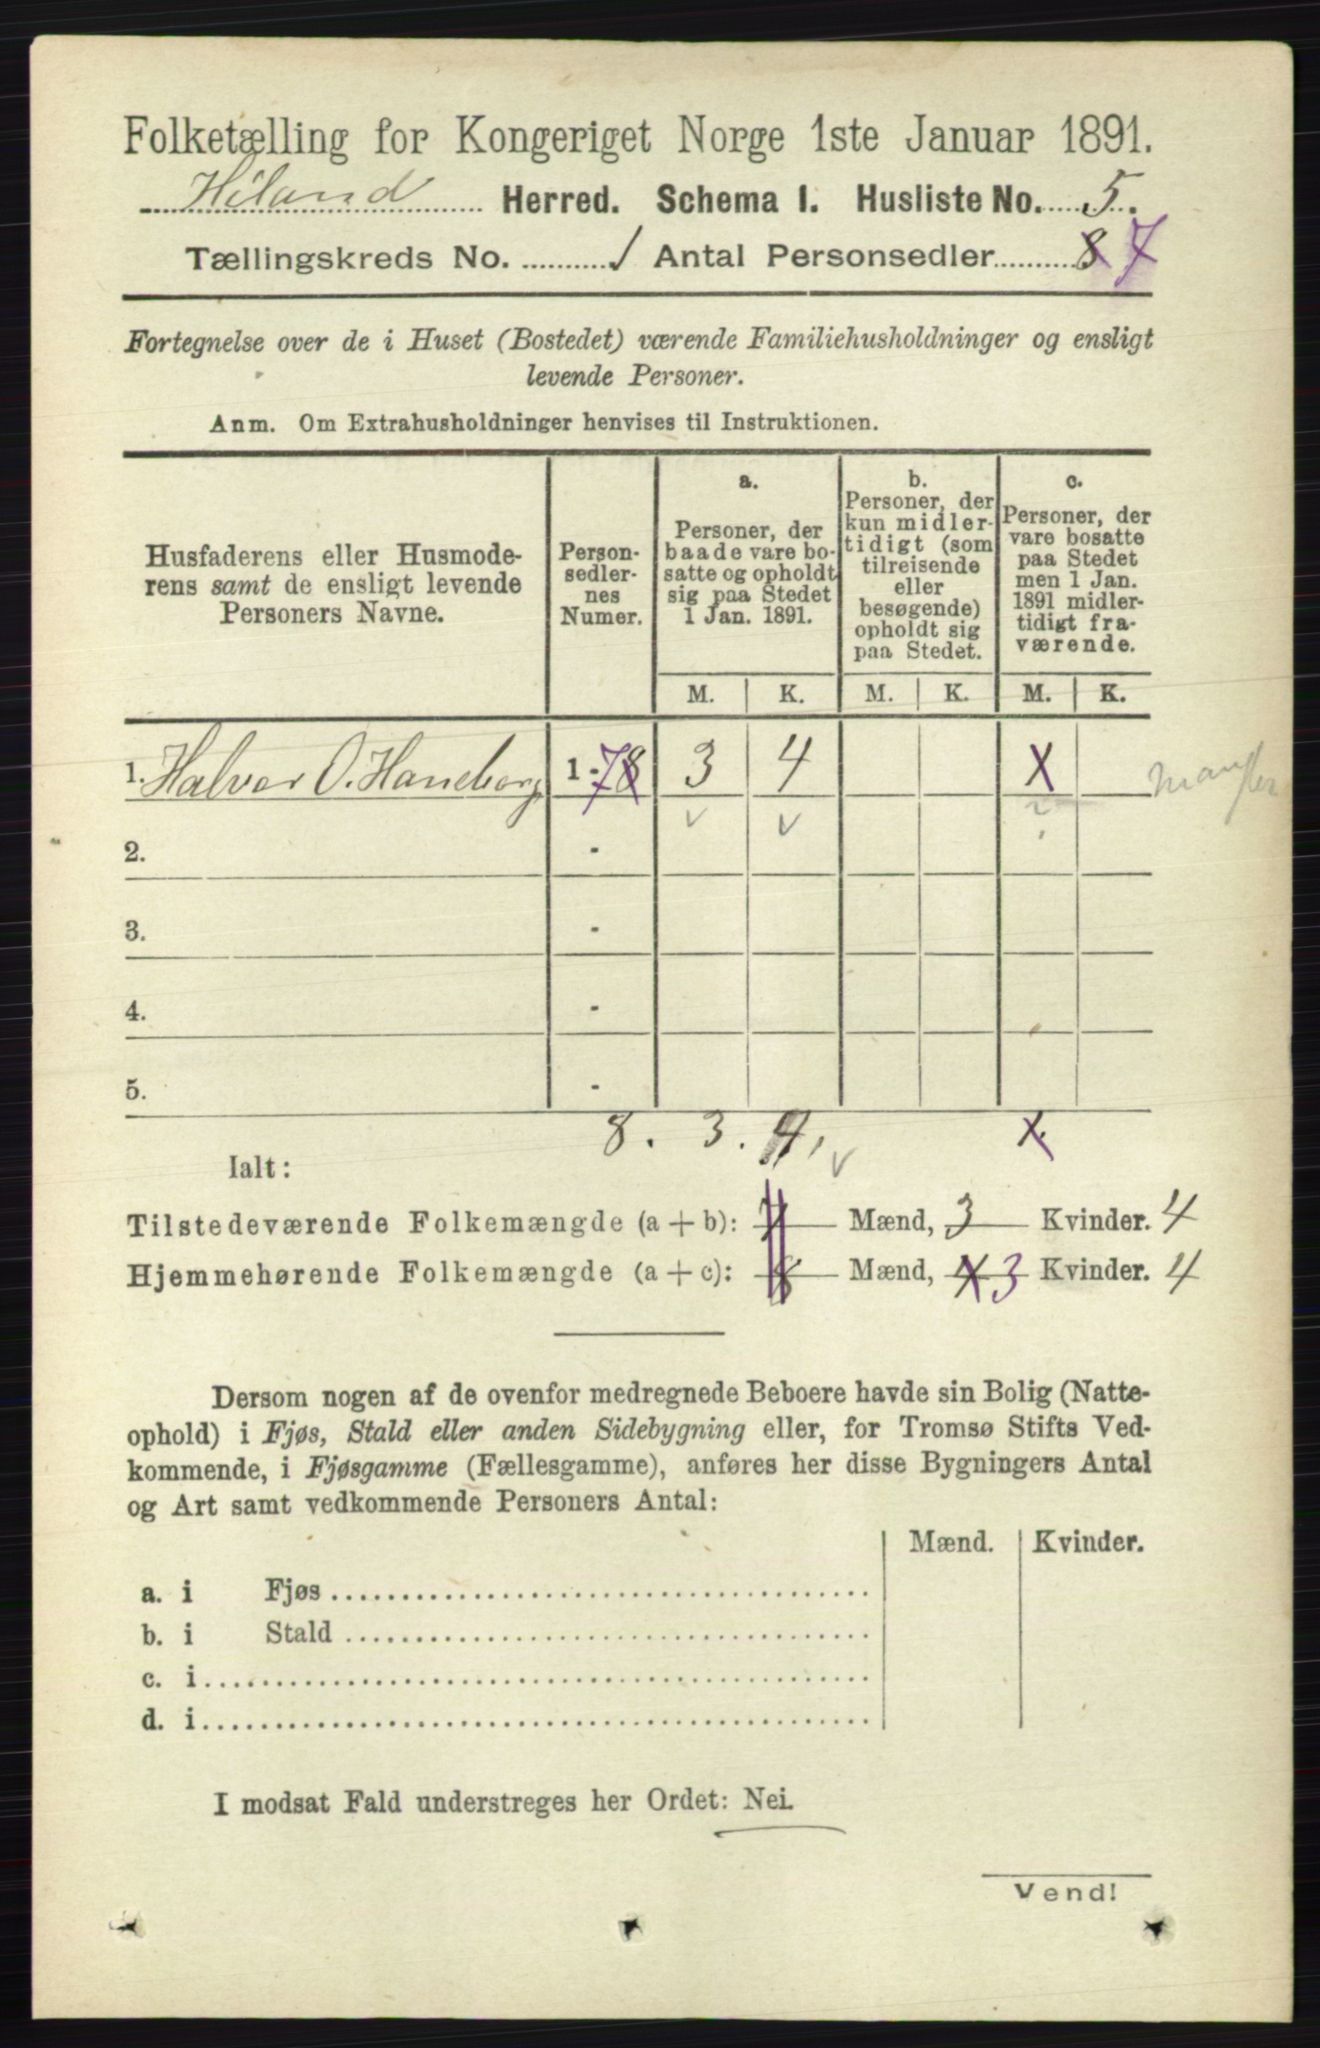 Folketælling for Kongeriget Norge 1ste Januar 1891.
Höland Herred. Schema I. Husliste No. 5.
Tællingskreds No. 1 Antal Personsedler 8 7
Fortegnelse over de i Huset (Bostedet) værende Familiehusholdninger og ensligt
levende Personer.
Anm. Om Extrahusholdninger henvises til Instruktionen.
Husfaderens eller Husmode-
rens samt de ensligt levende
Personers Navne.
Person-
sedler-
nes
Numer.
a.
Personer, der
baade vare bo-
satte og opholdt
sig paa Stedet
1 Jan. 1891.
b.
Personer, der
kun midler-
tidigt (som
tilreisende
eller
besøgende)
opholdt sig
paa Stedet.
c.
Personer, der
vare bosatte
paa Stedet
men 1 Jan.
1891 midler-
tidigt fra-
værende.
M. K. M. K. M. K.
1. Halvor O. Haneborg 1 - 7 8 3 4 mangler
2. -
3. -
4. -
5. -
8. 3. 4.
Ialt:
Tilstedeværende Folkemængde (a + b): 7 Mænd, 3 Kvinder. 4
Hjemmehørende Folkemængde (a + c): 8 Mænd, 4 3 Kvinder. 4
Dersom nogen af de ovenfor medregnede Beboere havde sin Bolig (Natte-
ophold) i Fjøs, Stald eller anden Sidebygning eller, for Tromsø Stifts Ved-
kommende, i Fjøsgamme (Fællesgamme), anføres her disse Bygningers Antal
og Art samt vedkommende Personers Antal:
Mænd. Kvinder.
a. i Fjøs
b. i Stald
c. i
d. i
I modsat Fald understreges her Ordet: Nei.
Vend!